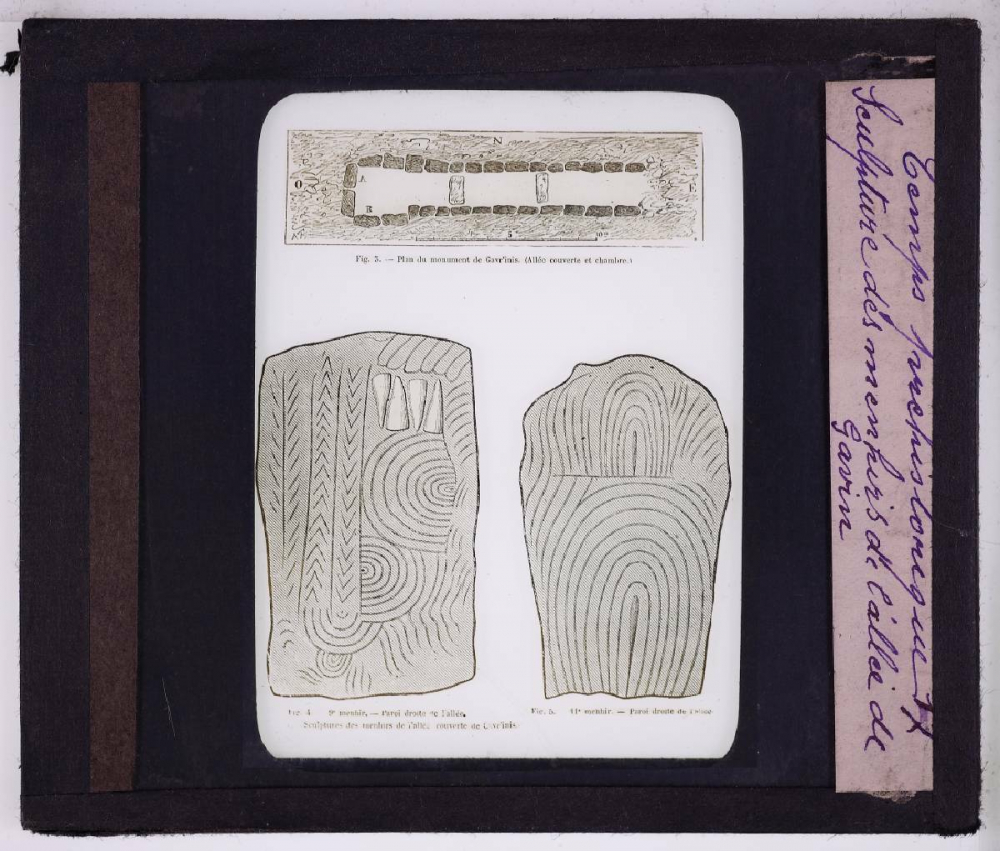 N
O
A
B
E
5
10m
Fig. 3. — Plan du monument de Gavr'inis. (Allée couverte et chambre.)
Fig. 4. 9e menhir. — Paroi droite de l'allée.
Fig. 5. 11e menhir. — Paroi droite de l'allée
Sculptures des menhirs de l'allée couverte de Gavr'inis.
Temps prehistorique
Sculpture des menhirs de l'allée de
Gavrin